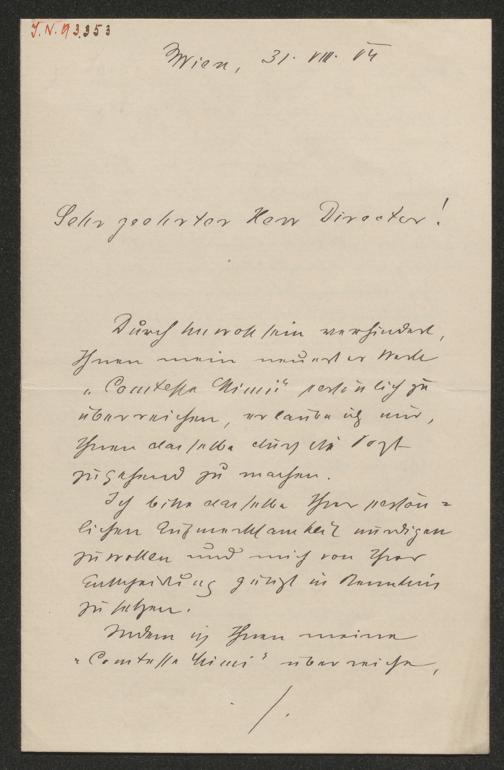 J.N. 93.353
Wien, 31. VII. 04
Sehr geehrter Herr Director!
Durch Unwohlsein verhindert,
Ihnen mein neuestes Werk
„Comtesse Mimi" persönlich zu
überreichen, erlaube ich mir,
Ihnen dasselbe durch die Post
zugehend zu machen.
Ich bitte dasselbe Ihrer persön=
lichen Aufmerksamkeit würdigen
zu wollen und mich von Ihrer
Entscheidung gütigst in Kenntnis
zu setzen.
Indem ich Ihnen meine
„Comtesse Mimi" überreiche,
/.